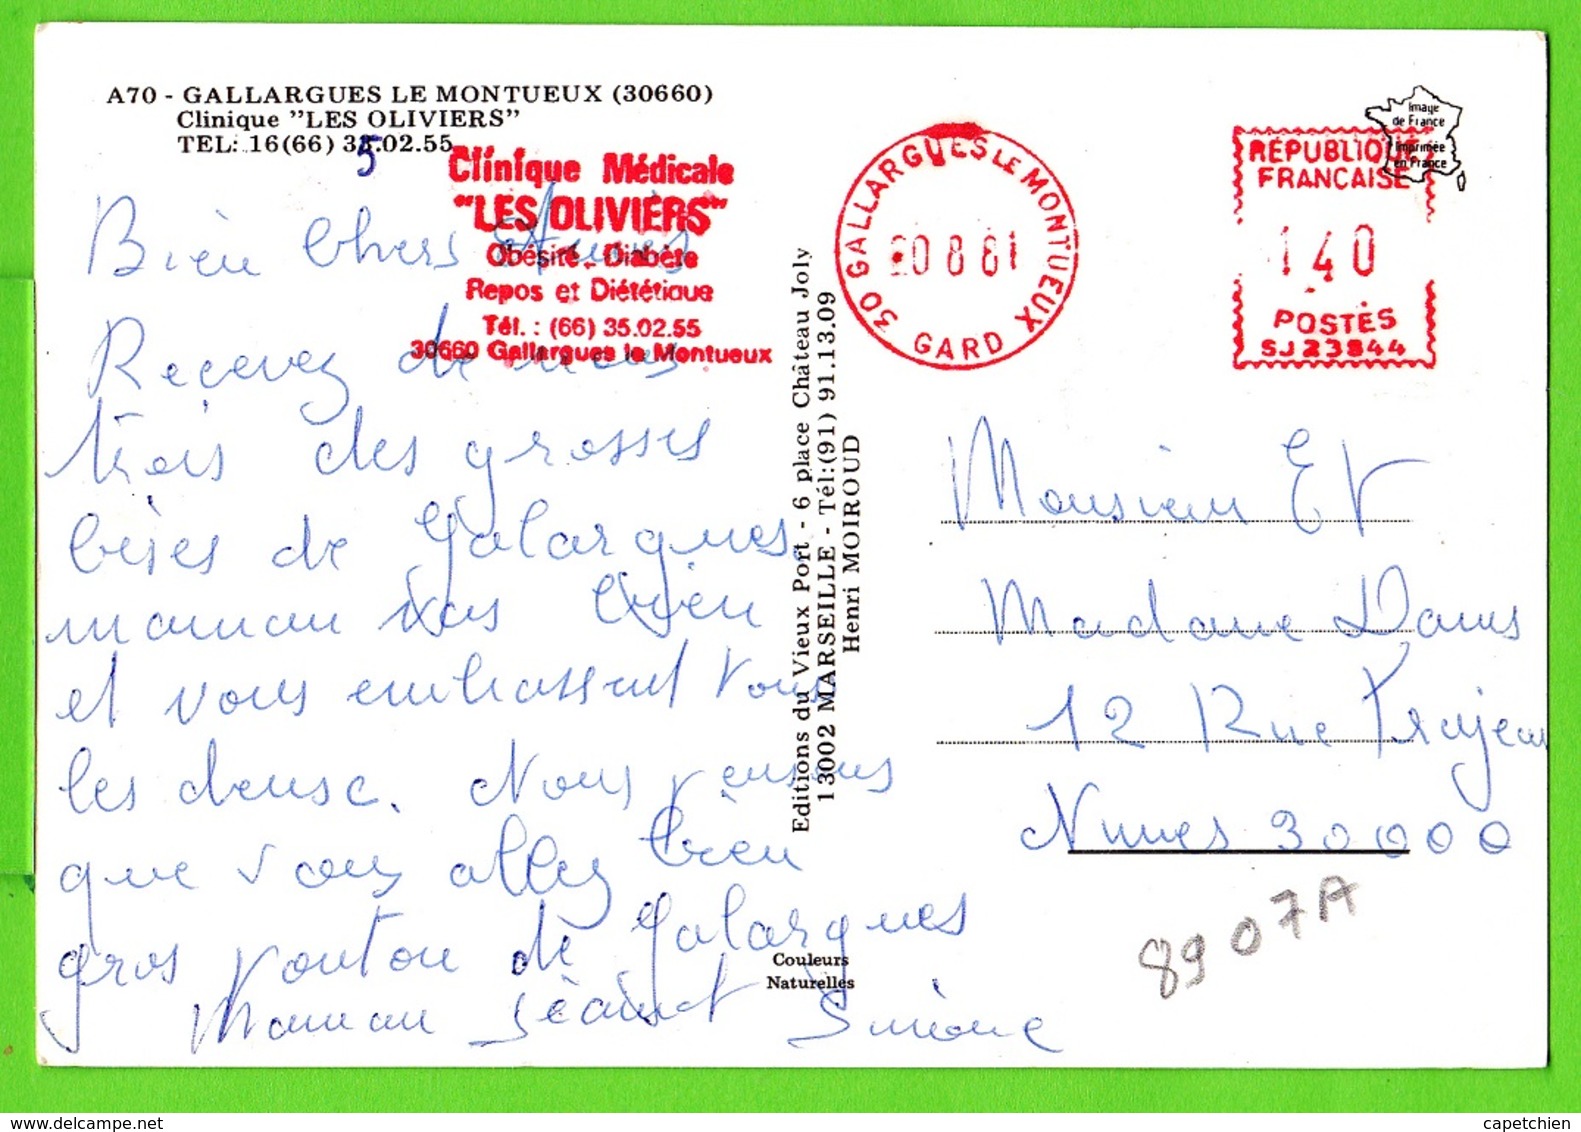 A70 - GALLARGUES LE MONTUEUX (30660)
Clinique "LES OLIVIERS"
TEL: 16(66) 35.02.55
Clinique Médicale
"LES OLIVIERS"
Obésité - Diabète
Repos et Diététique
Tél. : (66) 35.02.55
30660 Gallargues le Montueux
30 GALLARGUES LE MONTUEUX GARD
20 8 81
RÉPUBLIQUE
FRANCAISE
140
POSTES
SJ 23844
Image
de France
Imprimée
en France
Bien Chers
Recevez de nous
trois des grosses
bises de Galargues.
maman vas bien
et vous embrassent vous
les deusc. Nous pensons
que vous allez bien
gros de Galargues
Maman Simone
Editions du Vieux Port - 6 place Château Joly
13002 MARSEILLE - Tél:(91) 91.13.09
Henri MOIROUD
Couleurs
Naturelles
Monsieur Et
Madame
12 Rue Trajean
Nimes 30000
8907A
capetchien